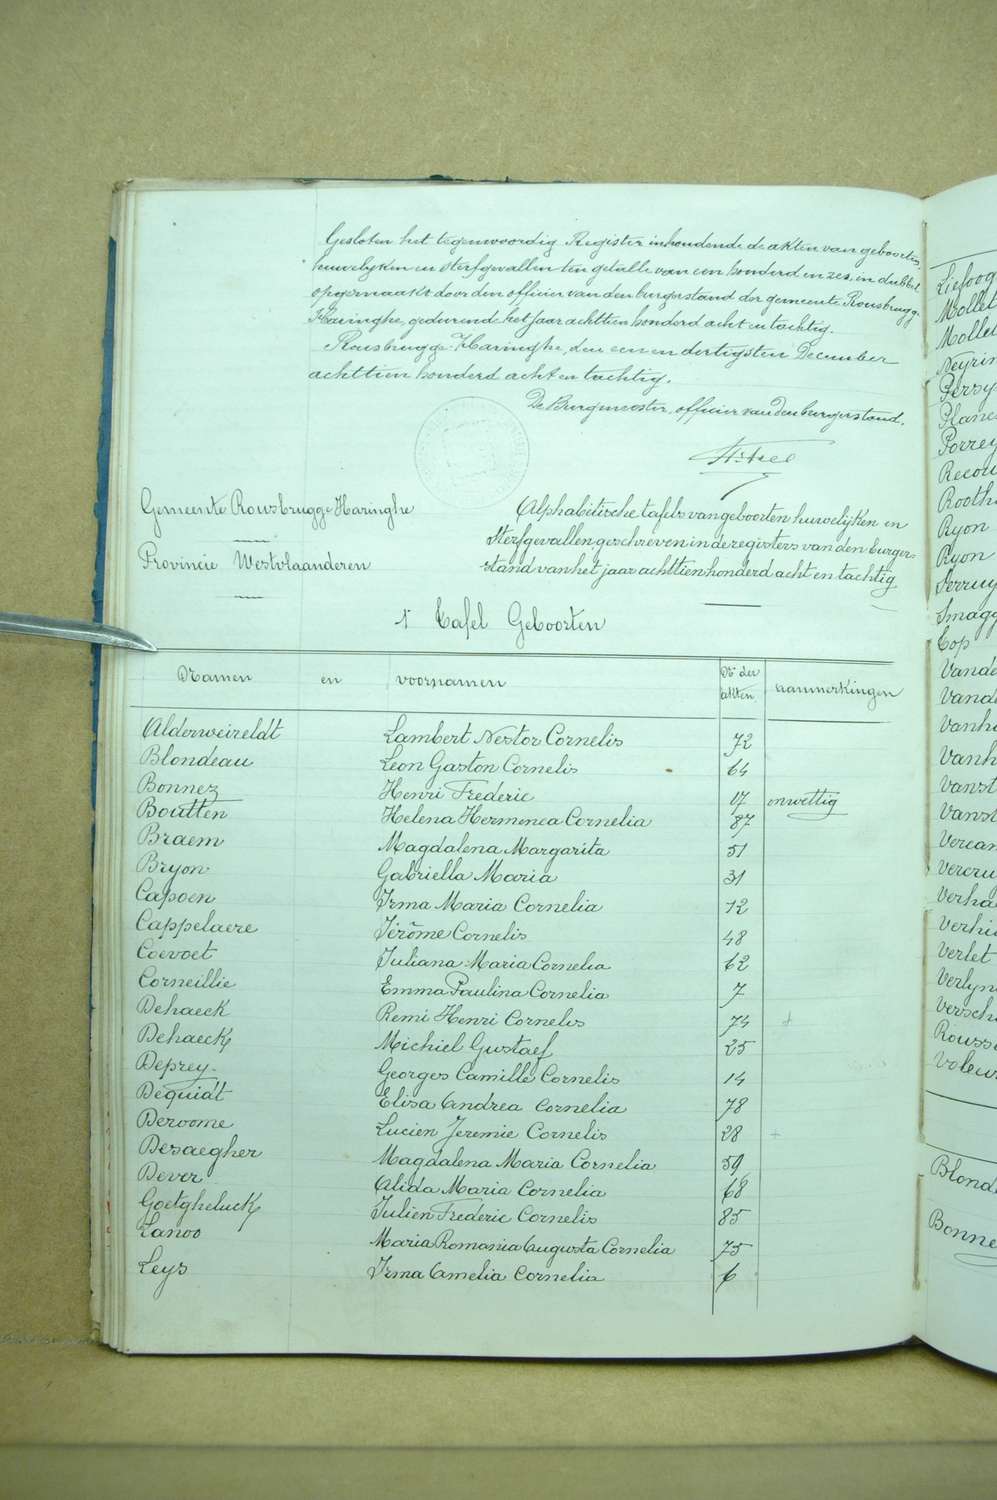 Gesloten het tegenwoordig Register inhoudende de akten van geboorten,
huwelijken en sterfgevallen ten getalle van een honderd en zes, in dubbel
opgemaakt door den officier van den burgerstand der gemeente Rousbrugge
Haringhe, gedurende het jaar achttien honderd acht en tachtig.
Rousbrugge-Haringhe, den een en dertigsten December
achttien honderd acht en tachtig.
De Burgmeester, officier van den burgerstand.
Gemeente Rousbrugge Haringhe
Provincie Westvlaanderen
Alphabetische tafels van geboorten huwelijken en
sterfgevallen geschreven in de registers van den burger-
stand van het jaar achttien honderd acht en tachtig
1 Tafel Geboorten
Namen en voornamen Nr der akten aanmerkingen
Alderweireldt Lambert Nestor Cornelis 72
Blondeau Leon Gaston Cornelis 64
Bonnez Henri Frederic 17 onwettig
Boutten Helena Hermenea Cornelia 87
Braem Magdalena Margarita 51
Bryon Gabriella Maria 31
Capoen Irma Maria Cornelia 12
Cappelaere Jérôme Cornelis 48
Coevoet Juliana Maria Cornelia 62
Corneillie Emma Paulina Cornelia 7
Dehaeck Remi Henri Cornelis 74 +
Dehaeck Michiel Gustaef 25
Deprey Georges Camille Cornelis 14
Dequidt Elisa Andrea Cornelia 78
Deroome Lucien Jeremie Cornelis 28 +
Desaegher Magdalena Maria Cornelia 59
Dever Alida Maria Cornelia 68
Goetgheluck Julien Frederic Cornelis 85
Lanoo Maria Romania Augusta Cornelia 75
Leys Irma Amelia Cornelia 6
Liefoog
Mollet
Mollet
Neyrin
Persy
Planc
Porrey
Recou
Rooth
Ryon
Ryon
Smagg
Top
Vande
Vande
Vanh
Vanh
Vanst
Vanst
Vercam
Vercru
Verha
Verhi
Verlet
Verlyn
Versch
Rouss
Voleur
Blond
Bonne